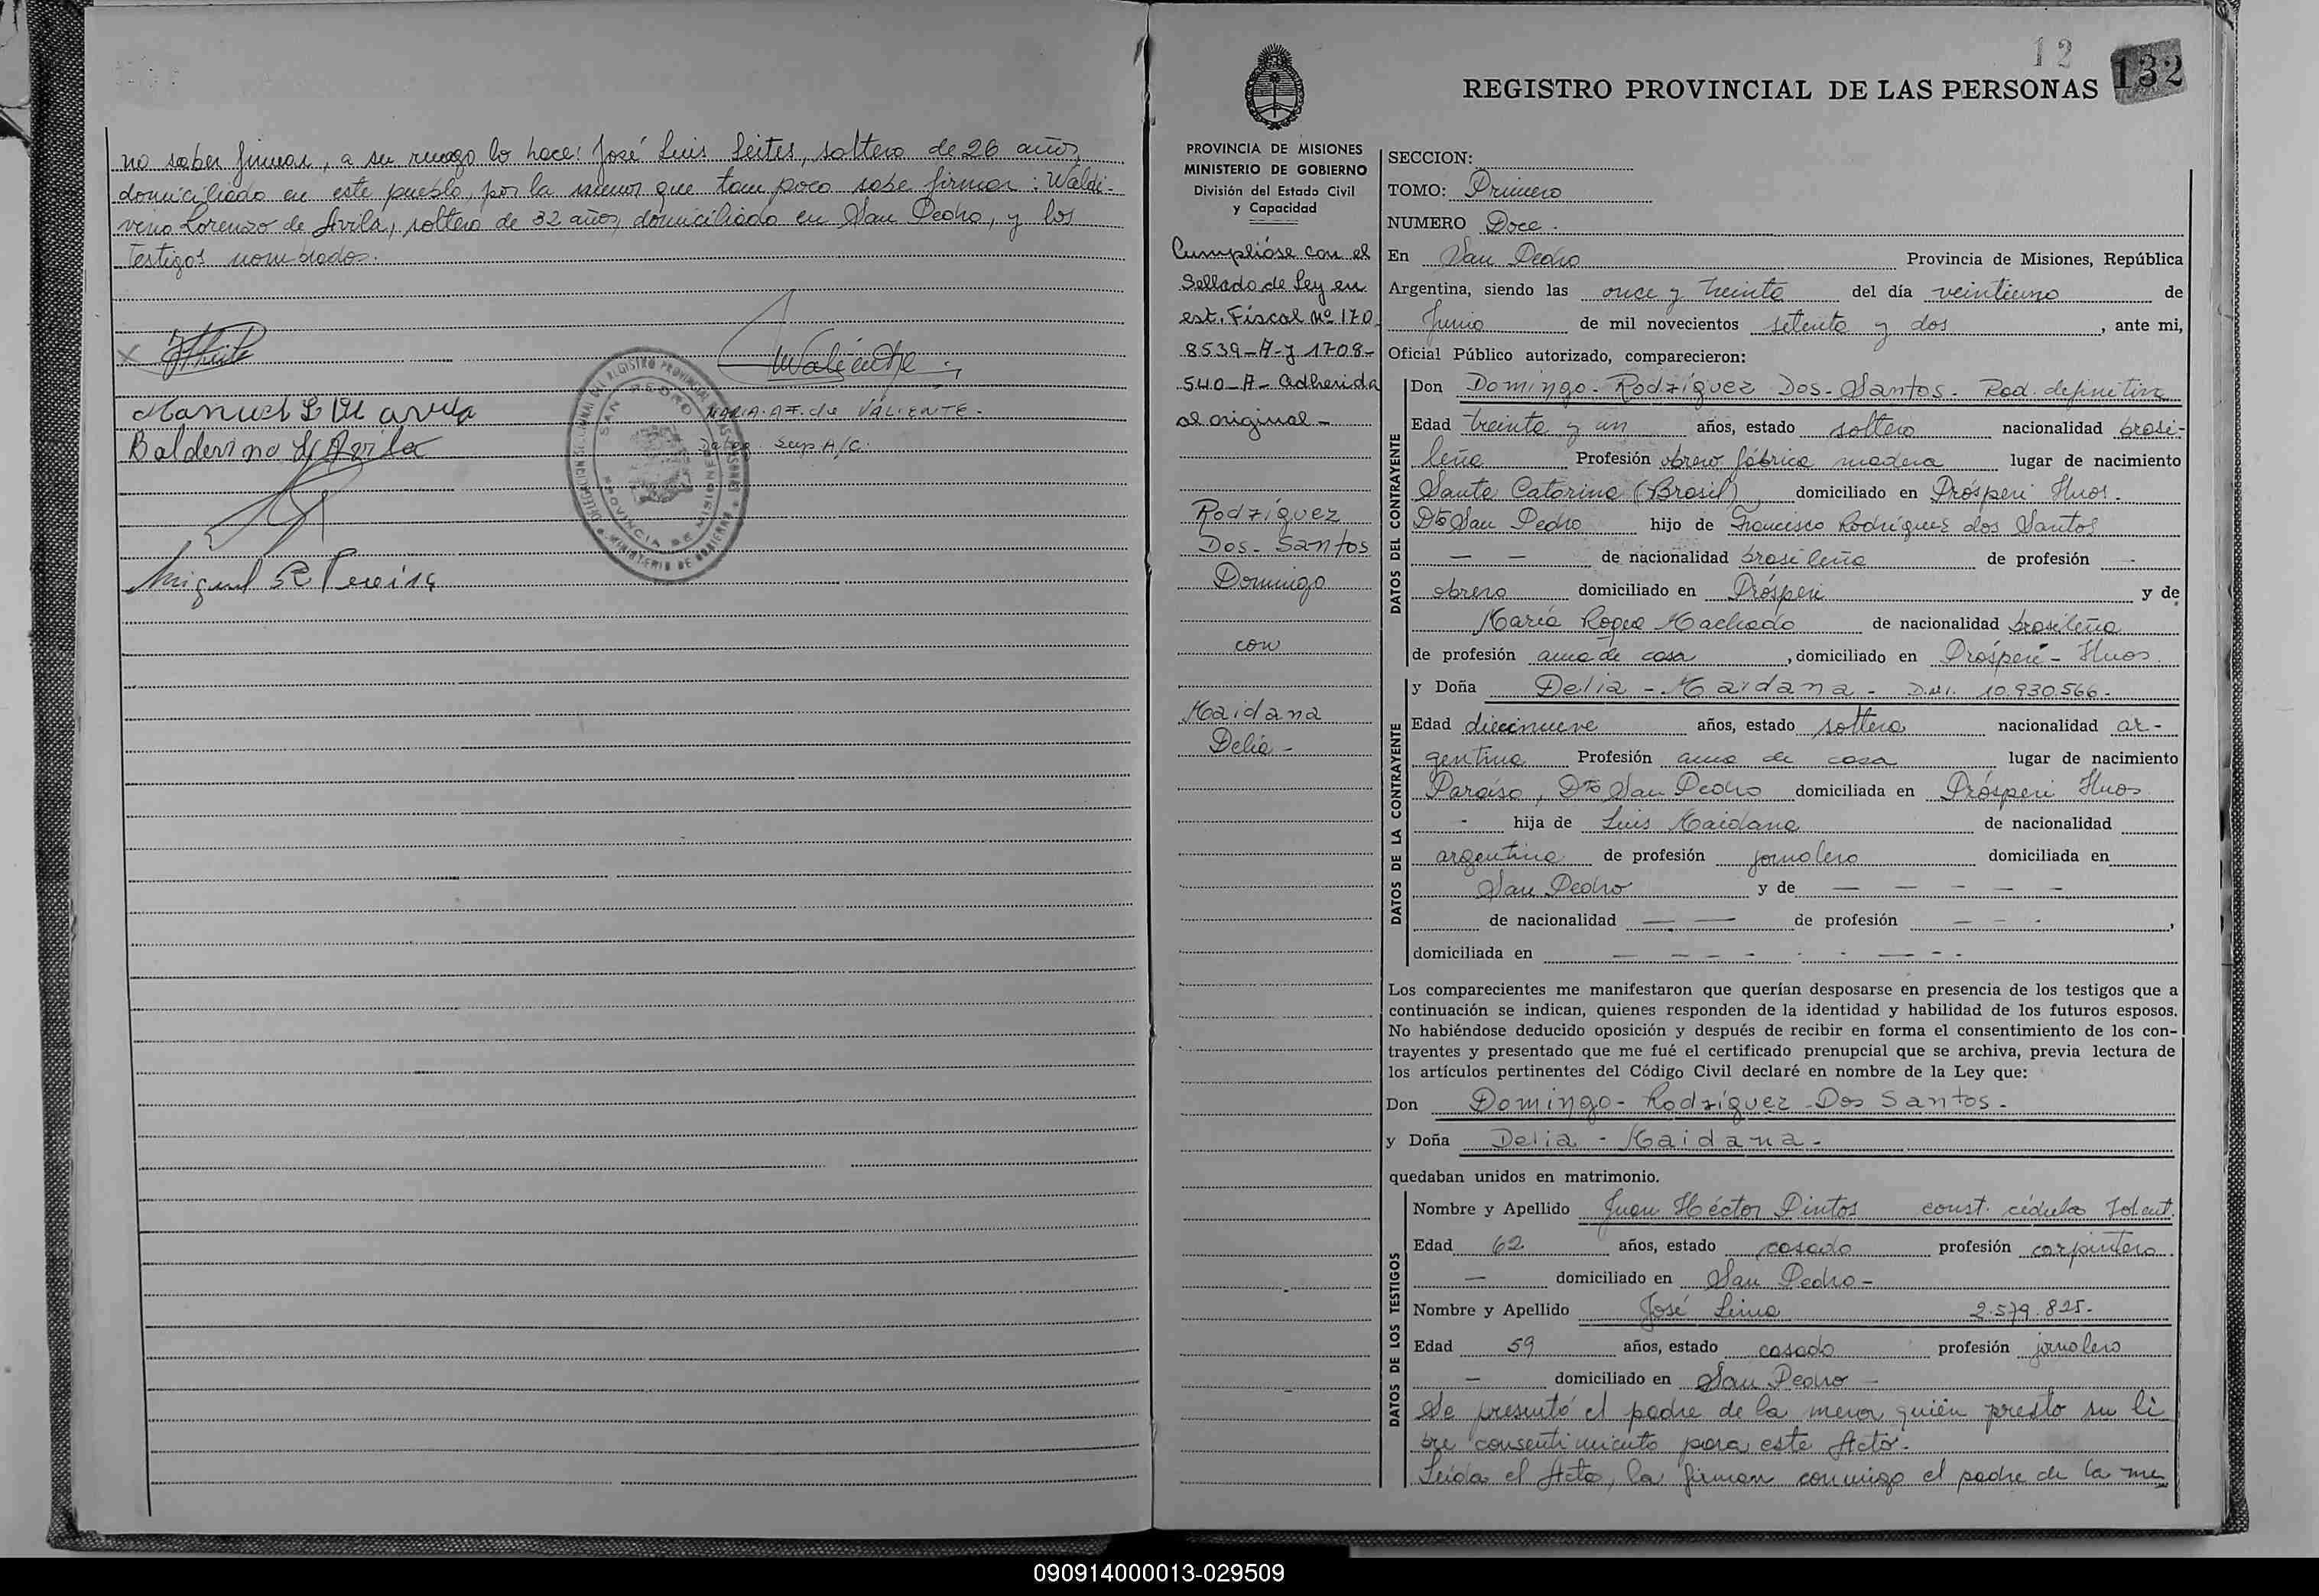 no saber firmar, a su ruego lo hace: José Luis Leites, soltero de 26 años,
domiciliado en este pueblo, por la menor que tam poco sabe firmar: Waldi-
vino Lorenzo de Avila, soltero de 32 años, domiciliado en San Pedro, y los
testigos nombrados.
Valiente
Manuel L de avila
MARIA. A F. de VALIENTE -
Balderino L Avila
Sup A/C.
DELEGACION SECCIONAL DEL REGISTRO PROVINCIAL DE LAS PERSONAS
SAN PEDRO
PROVINCIA DE MISIONES
MINISTERIO DE GOBIERNO
Miguel R Pereira
12
132
REGISTRO PROVINCIAL DE LAS PERSONAS
PROVINCIA DE MISIONES
MINISTERIO DE GOBIERNO
División del Estado Civil
y Capacidad
Cumplióse con el
Sellado de Ley en
est. Fiscal Nº 170
8539-A-y 1708-
540-A- adherida
al original -
Rodríguez
Dos - Santos
Domingo
con
Maidana
Delia -
SECCION:
TOMO: Primero
NUMERO Doce.
En San Pedro Provincia de Misiones, República
Argentina, siendo las once y treinta del día veintiuno de
Junio de mil novecientos setenta y dos, ante mi,
Oficial Público autorizado, comparecieron:
DATOS DEL CONTRAYENTE
Don Domingo - Rodríguez Dos - Santos - Rad. definitiva
Edad treinta y un años, estado soltero nacionalidad brasi-
leña Profesión obrero fábrica madera lugar de nacimiento
Santa Catarina (Brasil) domiciliado en Prósperi Hnos.
Dto San Pedro hijo de Francisco Rodrigues dos Santos
— — de nacionalidad brasileña de profesión -
obrero domiciliado en Prósperi y de
María Rogea Machado de nacionalidad brasileña
de profesión ama de casa, domiciliado en Prósperi - Hnos.
DATOS DE LA CONTRAYENTE
y Doña Delia - Maidana - D.N.I. 10.930.566 -
Edad diecinueve años, estado soltera nacionalidad ar-
gentina Profesión ama de casa lugar de nacimiento
Paraíso, Dto San Pedro domiciliada en Prósperi Hnos
- hija de Luis Maidana de nacionalidad
argentina de profesión jornalero domiciliada en
San Pedro y de — — — — —
de nacionalidad — — de profesión — — -,
domiciliada en — — — — - - — - -
Los comparecientes me manifestaron que querían desposarse en presencia de los testigos que a
continuación se indican, quienes responden de la identidad y habilidad de los futuros esposos.
No habiéndose deducido oposición y después de recibir en forma el consentimiento de los con-
trayentes y presentado que me fué el certificado prenupcial que se archiva, previa lectura de
los artículos pertinentes del Código Civil declaré en nombre de la Ley que:
Don Domingo - Rodríguez - Dos Santos -
y Doña Delia - Maidana -
quedaban unidos en matrimonio.
DATOS DE LOS TESTIGOS
Nombre y Apellido Juan Héctor Pintos const. cédula Ident.
Edad 62 años, estado casado profesión carpintero
— domiciliado en San Pedro -
Nombre y Apellido José Lima 2.579.825 -
Edad 59 años, estado casado profesión jornalero
— domiciliado en San Pedro —
Se presentó el padre de la menor quién presto su li
bre consentimiento para este Acto -
Leída el Acta, la firman conmigo el padre de la me
090914000013-029509